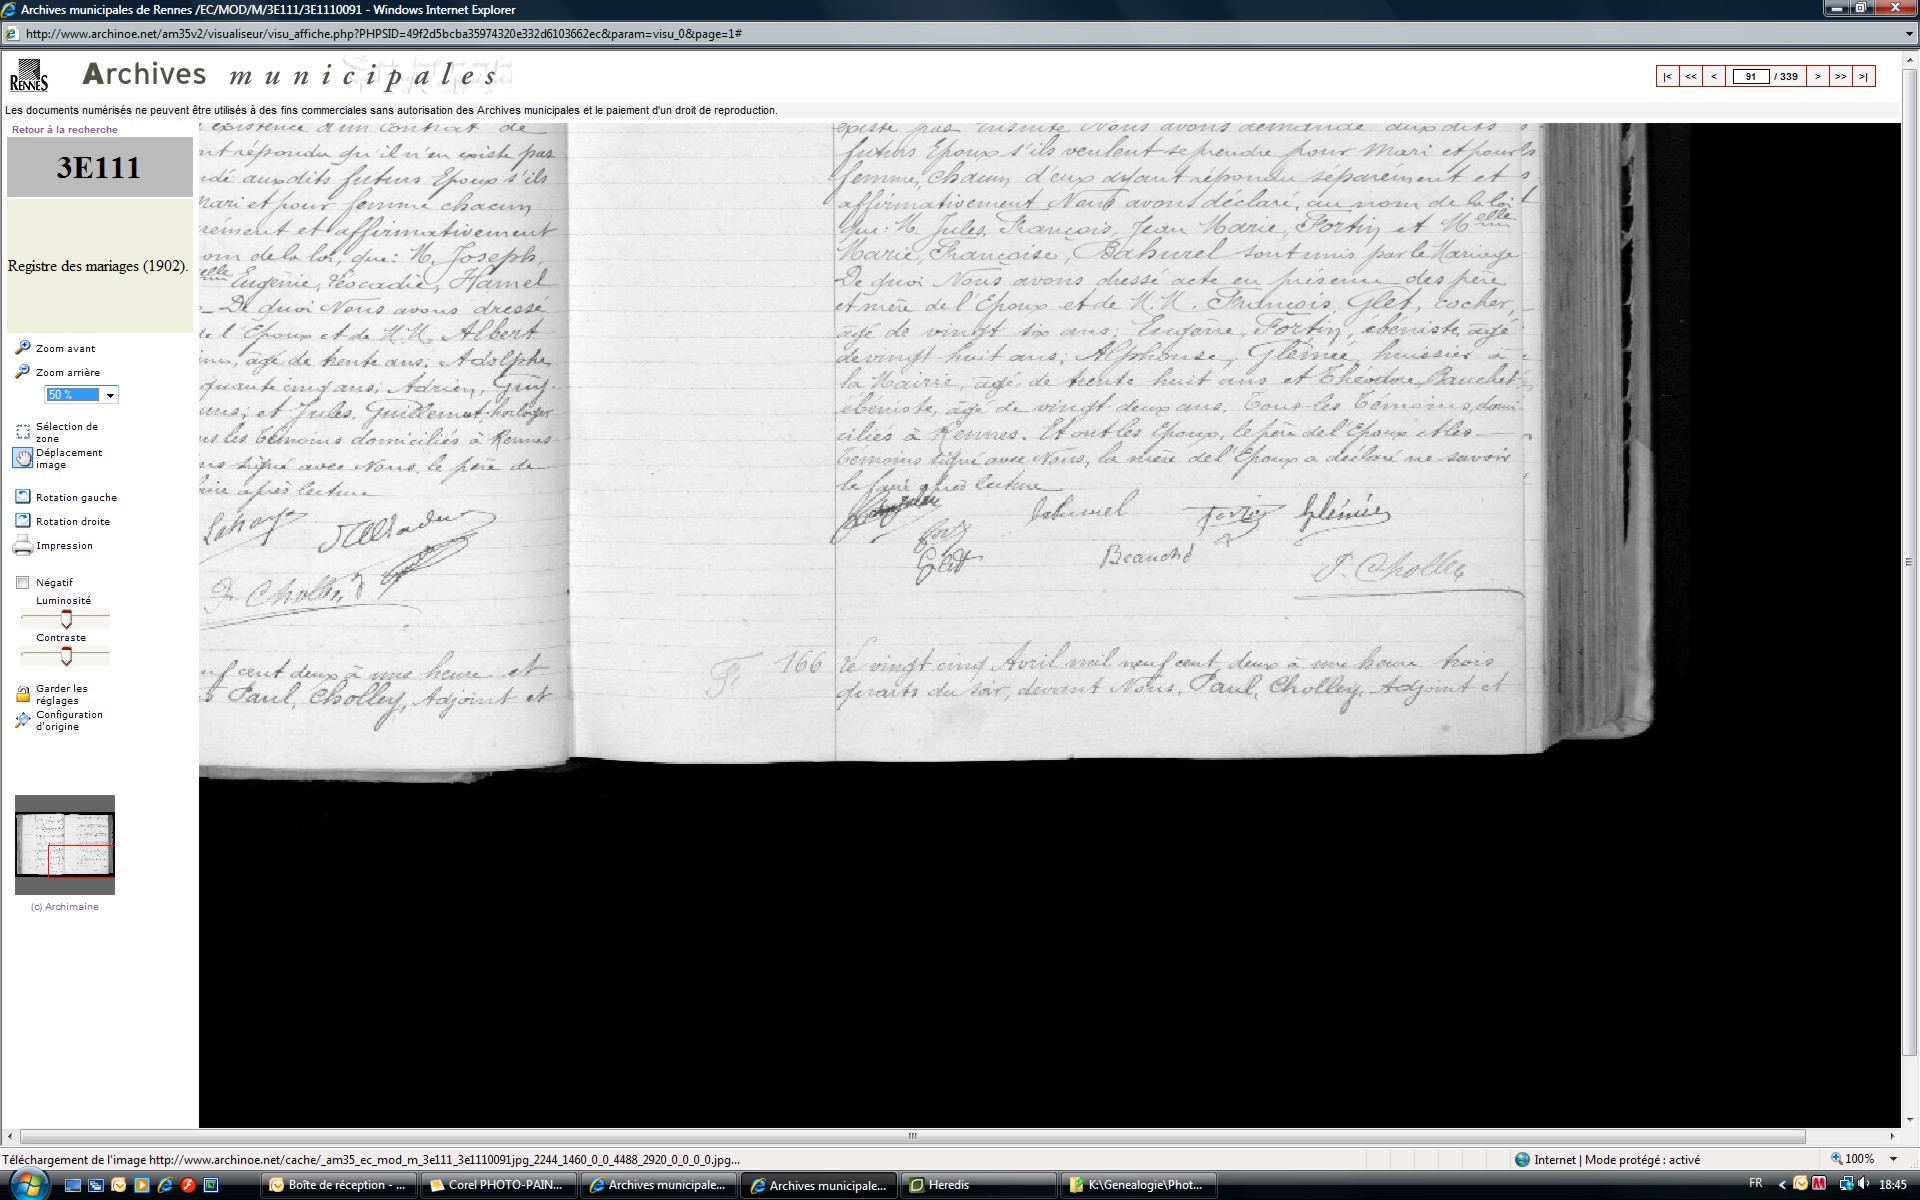 Archives municipales de Rennes /EC/MOD/M/3E111/3E1110091 - Windows Internet Explorer
http://www.archinoe.net/am35v2/visualiseur/visu_affiche.php?PHPSID=49f2d5bcba35974320e332d6103662ec&param=visu_0&page=1#
RENNES
Archives municipales
|< << < 91 / 339 > >> >|
Les documents numérisés ne peuvent être utilisés à des fins commerciales sans autorisation des Archives municipales et le paiement d'un droit de reproduction.
Retour à la recherche
3E111
Registre des mariages (1902).
Zoom avant
Zoom arrière
50 %
Sélection de
zone
Déplacement
image
Rotation gauche
Rotation droite
Impression
Négatif
Luminosité
Contraste
Garder les
réglages
Configuration
d'origine
(c) Archimaine
existence d'un contrat de
nt répondu qu'il n'en existe pas
ndé auxdits futurs Epoux s'ils
Mari et pour femme chacun
rément et affirmativement
om de la loi, que: M. Joseph,
elle Eugénie, Léocadie, Hamel
De quoi Nous avons dressé
de l'Epoux et de M.M. Albert
âgé de trente ans; Adolphe,
quante cinq ans; Adrien, Guy-
et Jules, Guillemot, horloger
us les témoins domiciliés à Rennes
signé avec Nous, le père de
faire après lecture
P. Cholley
uf cent deux à une heure et
s Paul, Cholley, Adjoint et
existe pas Ensuite Nous avons demandé auxdits
futurs Epoux s'ils veulent se prendre pour Mari et pour
femme, chacun d'eux ayant répondu séparément et
affirmativement Nous avons déclaré, au nom de la loi
que: M. Jules, François, Jean Marie, Fortin et Melle
Marie, Françoise, Bahurel sont unis par le Mariage
De quoi Nous avons dressé acte en présence des père
et mère de l'Epoux et de M.M. François, Glet, cocher,
âgé de vingt six ans; Eugène, Fortin, ébéniste, âgé
de vingt huit ans; Alphonse, Glémée, huissier à
la Mairie, âgé de trente huit ans et Théodore, Bauchet
ébéniste, âgé de vingt deux ans. Tous les témoins, domi-
ciliés à Rennes. Et ont les Epoux, le père de l'Epoux et les
témoins signé avec Nous, la mère de l'Epoux a déclaré ne savoir
le faire après lecture
Bahurel Fortin Glémée
Glet
P. Cholley
166 Le vingt cinq Avril mil neuf cent deux à une heure trois
quarts du soir, devant Nous, Paul, Cholley, Adjoint et
Téléchargement de l'image http://www.archinoe.net/cache/_am35_ec_mod_m_3e111_3e1110091jpg_2244_1460_0_0_4488_2920_0_0_0_0.jpg...
Internet | Mode protégé : activé
100%
Boîte de réception - ...
Corel PHOTO-PAIN...
Archives municipale...
Archives municipale...
Heredis
K:\Genealogie\Phot...
FR
18:45